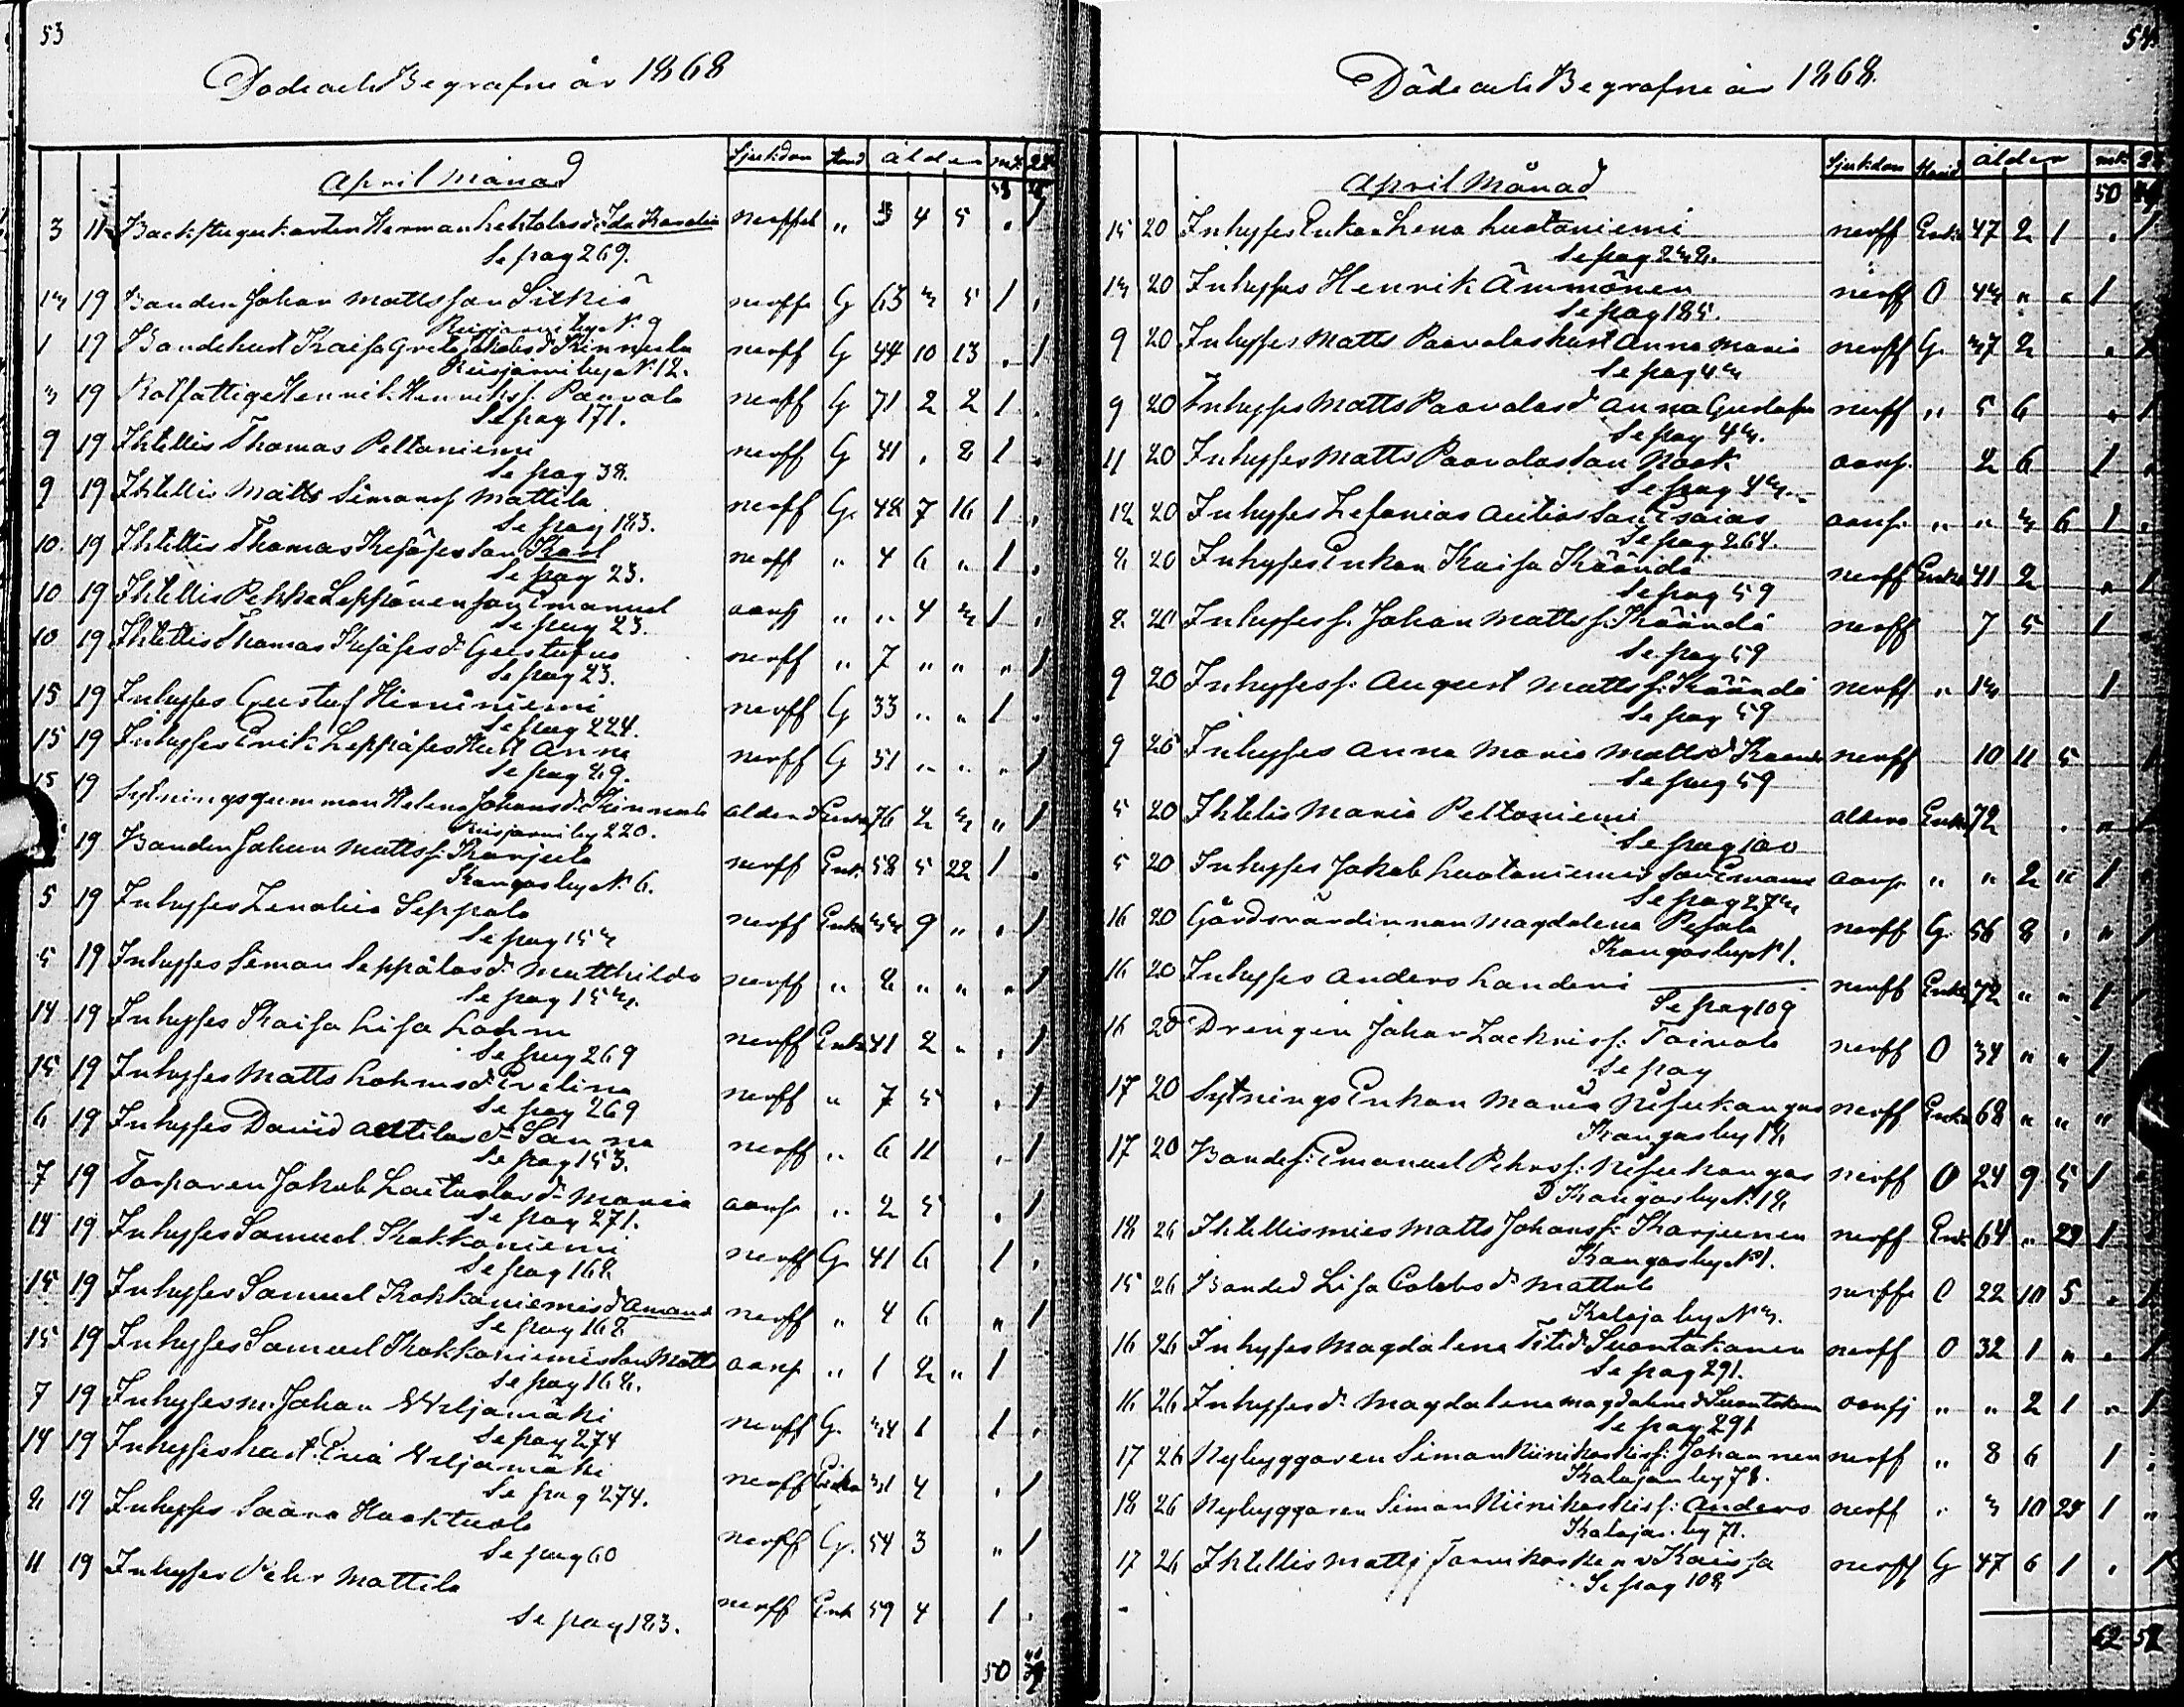 53
Döde och Begrafne år 1868
Sjukdom Stånd ålder mk qk
April Månad
3 11 Backstugukarlen Herman Lehtolas d. Ida Karolin nerffeb " 3 4 5 . 1
Se pag 269.
19 Bonden Johan Mattsson Sitkiö nerff G 63 5 1 .
Reisjärvi by N. 9
1 19 Bondehust Kaisa Greta Jakobsd Kinnula nerff G 44 10 13 . 1
Reisjärvi by N. 12.
3 19 Rotfattige Henrik Henrikss. Paavola nerff G 71 2 2 1 .
Se pag 171.
9 19 Ihtellis Thomas Peltoniemi nerff G 41 . 8 1 .
Se pag 38.
9 19 Ihtellis Matts Simonss Mattila nerff G. 48 7 16 1 .
Se pag 183.
10. 19 Ihtellis Thomas Kesäjes son Karl nerff " 4 6 " 1 .
Se pag 23.
10 19 Ihtellis Pekka Leppänen son Emanuel aanf " " 4 3 1 .
Se pag 23.
10 19 Ihtellis Thomas Kesäjes d. Gustafva nerff " 7 " " " 1
Se pag 23.
15 19 Inhyses Gustaf Himiniemi nerff G 33 " " 1 .
Se pag 224.
15 19 Inhyses Erik Leppäjes Hust Anna nerff G 51 " " " 1
Se pag 89.
15 19 Sytningsgumman Helena Johansd. Kinnula alderd Enka 76 2 3 " 1
Reisjärvi by 220.
19 Bonden Johan Mattss. Karjula nerff Enk. 58 5 22 1 .
Kangas by N. 6.
5 19 Inhyses Zenobia Seppälä nerff Enka 9 " . 1
Se pag 153
5 19 Inhyses Simon Seppälas d. Matthilda nerff " 8 " " " 1
Se pag 153.
14 19 Inhyses Kaisa Lisa Lohm nerff Enka 41 2 " . 1
Se pag 269
15 19 Inhyses Matts Lohms d. Evelina nerff " 7 5 . 1
Se pag 269
6 19 Inhyses David Anttilas d. Sanna nerff " 6 11 . 1
Se pag 153.
7 19 Torparen Jakob Laitalas d. Maria aanf " 2 5 . 1
Se pag 271.
14 19 Inhyses Samuel Kokkoniemi nerff G. 41 6 1 .
Se pag 168
15 19 Inhyses Samuel Kokkoniemis d. Amanda nerff " 4 6 " 1
Se pag 168
15 19 Inhyses Samuel Kokkoniemis son Matts aanf " 1 2 " 1
Se pag 168.
7 19 Inhyses m. Johan Wiljamäki nerff G. 34 1 1 .
Se pag 274
14 19 Inhyses hust. Eva Wiljamäki nerff Enka 31 4 . 1
Se pag 274.
8 19 Inhyses Saara Huoktuola nerff G. 54 3 " 1
Se pag 60
11 19 Inhyses Pehr Mattila nerff Enk 59 4 1 .
Se pag 183.
50
54
Döde och Begrafne år 1868.
Sjukdom Stånd ålder mk
April Månad
50
15 20 Inhyses Enkan Lena Luotoniemi nerff Enka 47 2 1 . 1
Se pag 238.
13 20 Inhyses Henrik Ämmönen nerff O 43 " " 1 .
Se pag 185.
9 20 Inhyses Matts Paavolas hust Anna Maria nerff G. 37 2 . 1
Se pag 43
9 20 Inhyses Matts Paavolas d. Anna Gustafva nerff " 5 6 . 1
Se pag 43.
11 20 Inhyses Matts Paavolas son Noak aanf. 2 6 1 .
Se pag 43.
12 20 Inhyses Zefanias Autios son Esaias aanf. " " 3 6 1 .
Se pag 264.
8 20 Inhyses Enkan Kaisa Käändä nerff Enka 41 2 " 1
Se pag 59
8 20 Inhyses s. Johan Matts s. Käändä nerff 7 5 1 .
Se pag 59
9 20 Inhyses s. August Matts s. Käändä nerff " 13 1
Se pag 59
9 20 Inhyses Anna Maria Matts d. Kaanda nerff 10 11 5 1
Se pag 59
5 20 Ihtelis Maria Peltoniemi alders Enka 72 . " 1
Se pag 100
5 20 Inhyses Jakob Luotoniemis son Emanuel aanf. " " 2 " 1 "
Se pag 273
16 20 Gårdsvärdinnan Magdalena Pesola nerff G. 56 8 . " 1
Kangas by N 1.
16 20 Inhyses Anders Landeri nerff Enkl 72 " " 1
Se pag 109
16 20 Drengen Johan Zachriss. Toivola nerff O 34 " " 1
Se pag
17 20 Sytnings Enkan Maria Nisukangas nerff Enka 68 " " "
Kangas by 18
17 20 Bondes. Emanuel Pehrss. Nisukangas nerff O 24 9 5 1 .
Kangas by N. 18
18 26 Ihtellismies Matts Johanss. Karjunen nerff Enk 64 " 29 1
Kangas by N 1.
15 26 Bonded Lisa Calebs d. Mattila nerff O 22 10 5 . 1
Kalaja by N 3.
16 26 Inhyses Magdalena Titi d. Suontakanen nerff O 32 1 " . 1
Se pag 291.
16 26 Inhyses d. Magdalena Magdalena d. Suontakan aanf " " 2 1 " 1
Se pag 291
17 26 Nybyggaren Simon Niinikoskis s. Johannes nerff " 8 6 1 .
Kalajan by 71.
18 26 Nybyggaren Simon Niinikoskis s. Anders nerff " 3 10 29 1 "
Kalajas. by 71.
17 26 Ihtellis Matts Torvikoski v Kaisa nerff G 47 6 1 . 1
Se pag 108
62 52